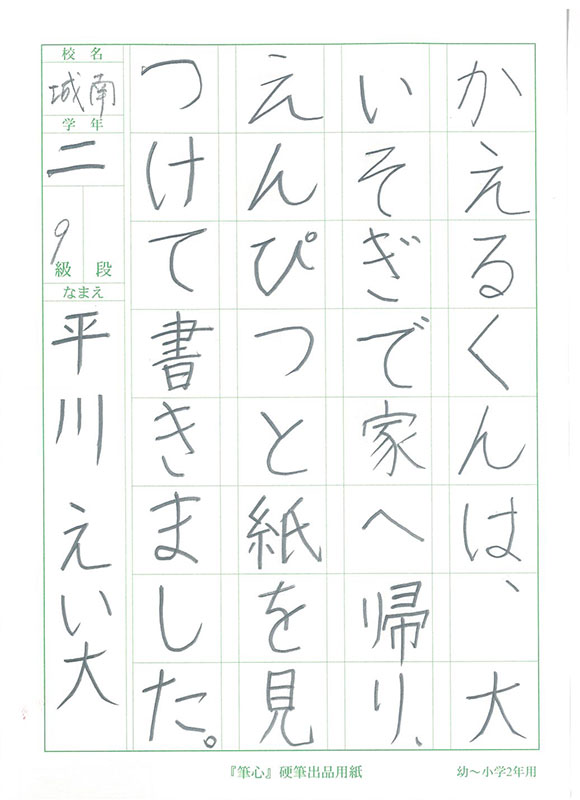 かえるくんは、大
いそぎで家へ帰り、
えんぴつと紙を見
つけて書きました。
校名
城南
学年
二
9
級 段
なまえ
平川 えい大
『筆心』硬筆出品用紙
幼〜小学2年用